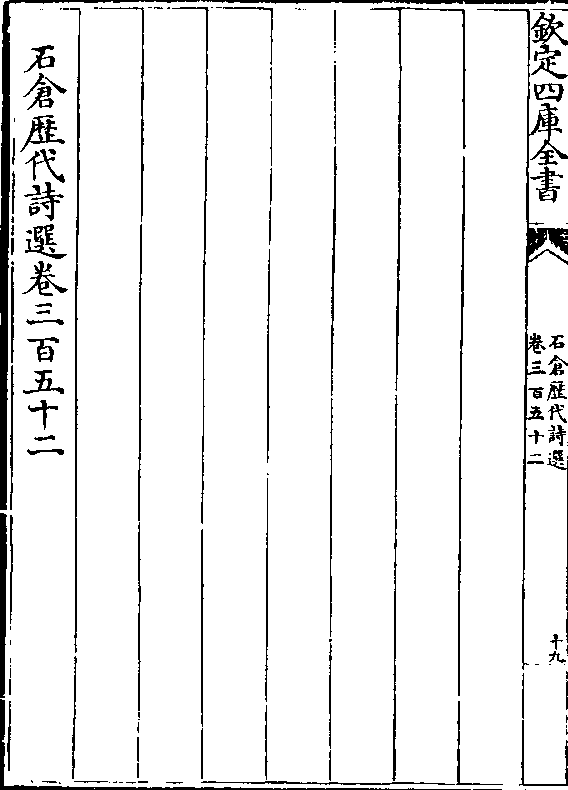 欽定四庫全書
石倉歷代詩選
卷三百五十二
十九
石倉歷代詩選卷三百五十二